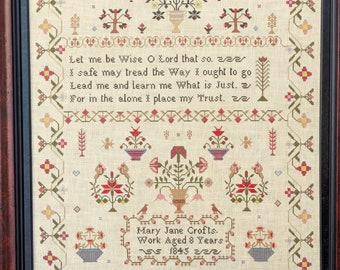 Let me be Wise O Lord that so.
I safe may tread the Way I ought to go
Lead me and learn me What is Just.
For in the alone I place my Trust.
Mary Jane Crofts.
Work Aged 8 Years
1845